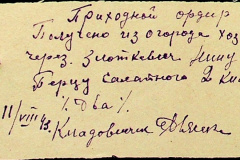 Приходной ордир
Получено из огорода хоз
через. Златкевич Нину
Перцу салатного 2 ки
/. Два /.
11/VIII 43. Кладовщик